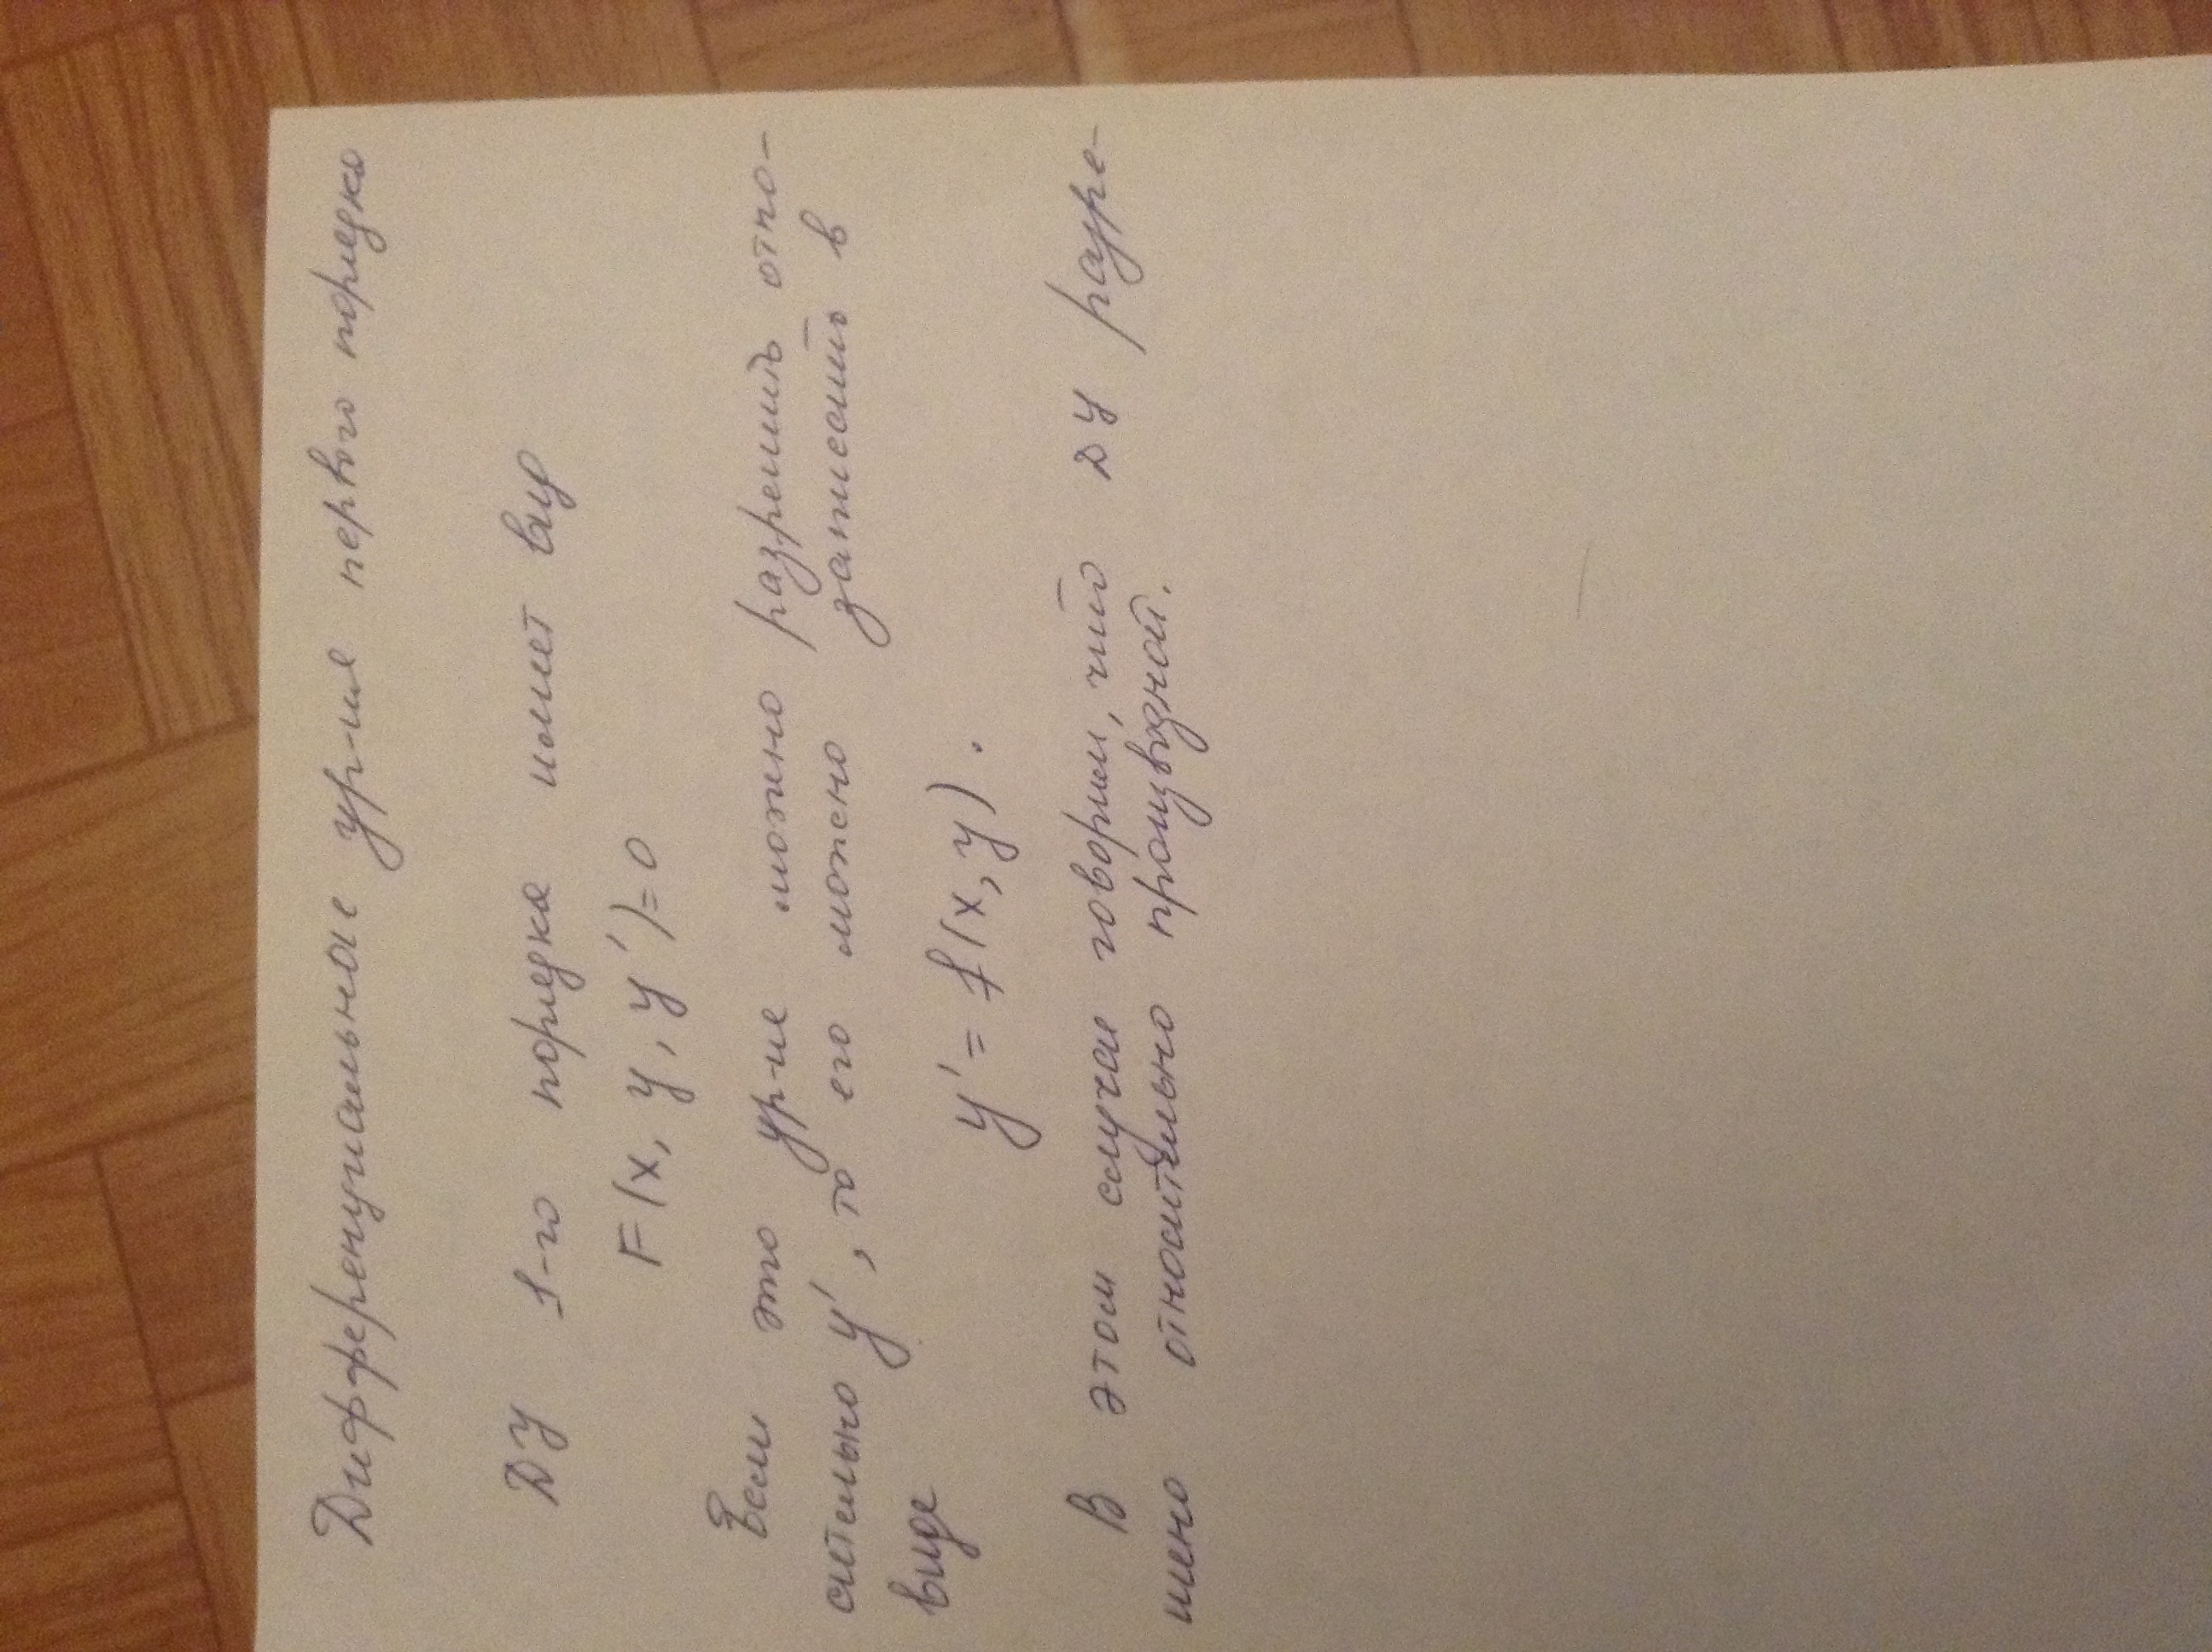 Дифференциальные ур-ия первого порядка
ДУ 1-го порядка имеет вид
F(x, y, y')=0
Если это ур-ие можно разрешить отно-
сительно y', то его можно записать в
виде
y' = f(x, y).
В этом случае говорим, что ДУ разре-
шено относительно производной.